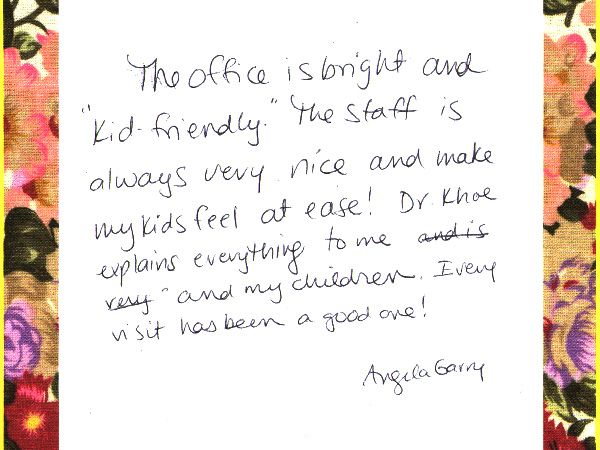 The office is bright and
"kid-friendly." The staff is
always very nice and make
my kids feel at ease! Dr. Khoe
explains everything to me and is
very and my children. Every
visit has been a good one!
Angela Garry